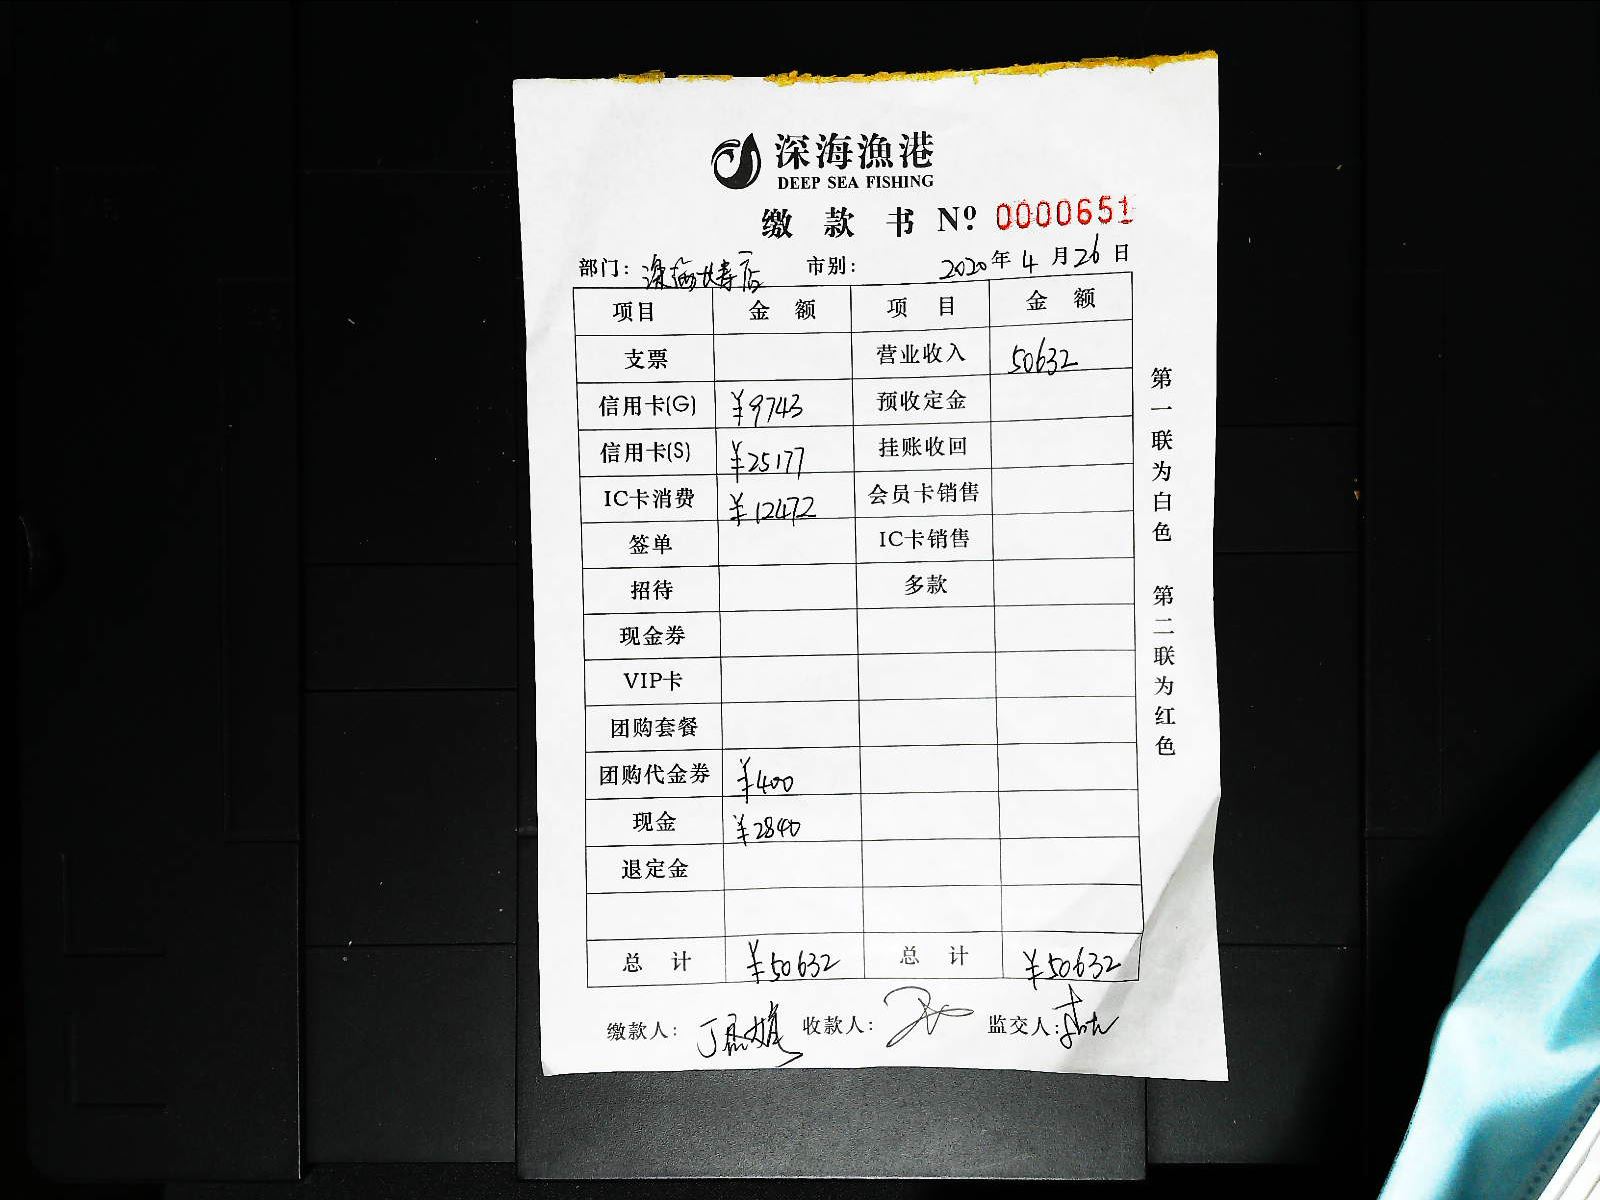 深海漁港
DEEP SEA FISHING
缴款书 Nº: 0000651
部门: 深海大寿店 市别: 2020年4月26日
项目 金额 项目 金额
支票 营业收入 50632
信用卡(G) ¥9743 预收定金
信用卡(S) ¥25177 挂账收回
IC卡消费 ¥12472 会员卡销售
签单 IC卡销售
招待 多款
现金券
VIP卡
团购套餐
团购代金券 ¥400
现金 ¥2840
退定金
总计 ¥50632 总计 ¥50632
缴款人: 收款人: 监交人:
第一联为白色 第二联为红色